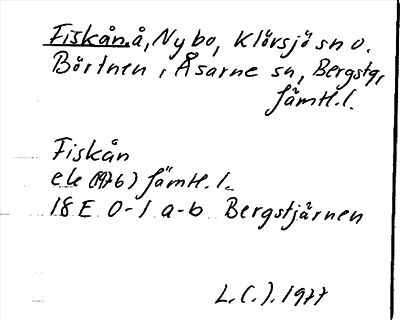 Fiskån, å, Nybo, Klövsjö sn o.
Börtnen i Åsarne sn, Bergs tg,
Jämtl. l.
Fiskån
ek (1976) Jämtl. l.
18 E 0-1 a-b Bergstjärnen
L. C. J. 1977